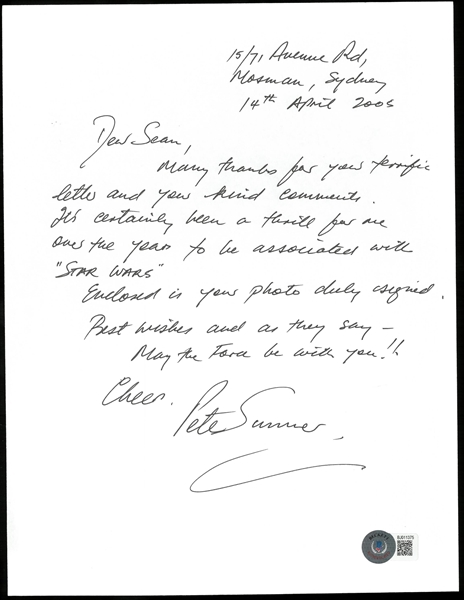 15/71 Avenue Rd,
Mosman, Sydney
14th April 2005
Dear Sean,
Many thanks for your terrific
letter and your kind comments.
It's certainly been a thrill for me
over the years to be associated with
"STAR WARS"
Enclosed is your photo duly signed.
Best wishes and as they say -
May the Force be with you!!
Cheers.
Peter Sumner
BECKETT